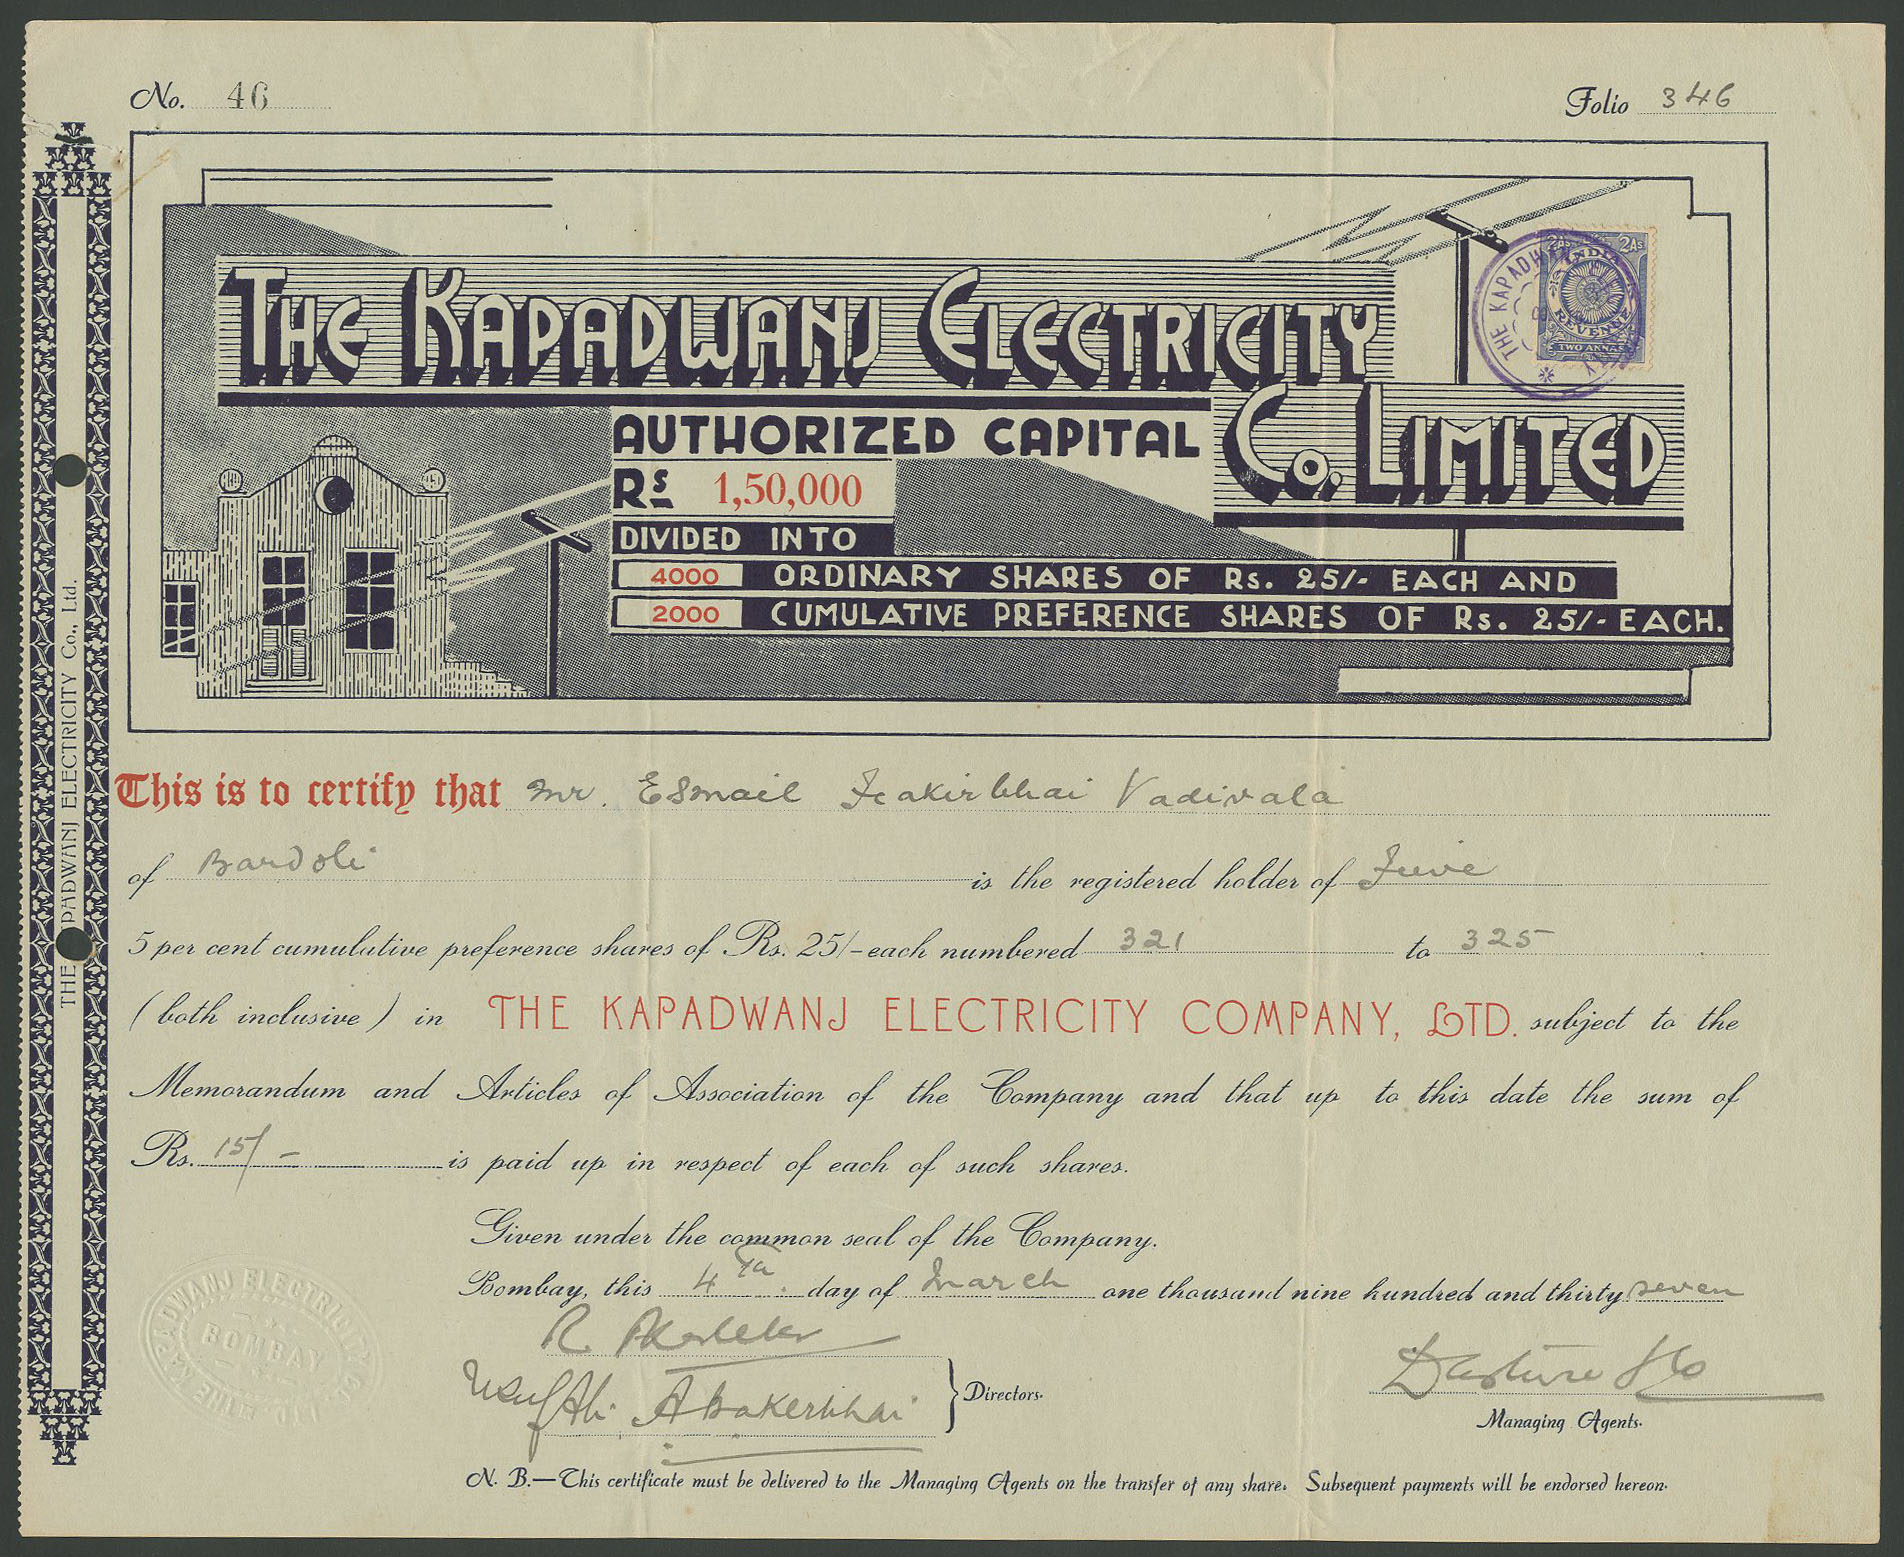 No. 46
Folio 346
THE KAPADWANJ ELECTRICITY
CO. LIMITED
THE KAPADW
2As. 2As.
INDIA
REVENUE
TWO ANNAS
AUTHORIZED CAPITAL
Rs 1,50,000
DIVIDED INTO
4000 ORDINARY SHARES OF Rs. 25/- EACH AND
2000 CUMULATIVE PREFERENCE SHARES OF Rs. 25/- EACH.
THE PADWANJ ELECTRICITY Co., Ltd.
This is to certify that Mr. Esmail Fakirbhai Vadivala
of Bardoli is the registered holder of Five
5 per cent cumulative preference shares of Rs. 25/- each numbered 321 to 325
(both inclusive) in THE KAPADWANJ ELECTRICITY COMPANY, LTD. subject to the
Memorandum and Articles of Association of the Company and that up to this date the sum of
Rs. 15/- is paid up in respect of each of such shares.
Given under the common seal of the Company.
Bombay, this 4th day of March one thousand nine hundred and thirty seven
KAPADWANJ ELECTRICITY
BOMBAY
R.
Yusufali Abakerbhai
Directors.
Dasture & Co
Managing Agents.
N. B.—This certificate must be delivered to the Managing Agents on the transfer of any share. Subsequent payments will be endorsed hereon.